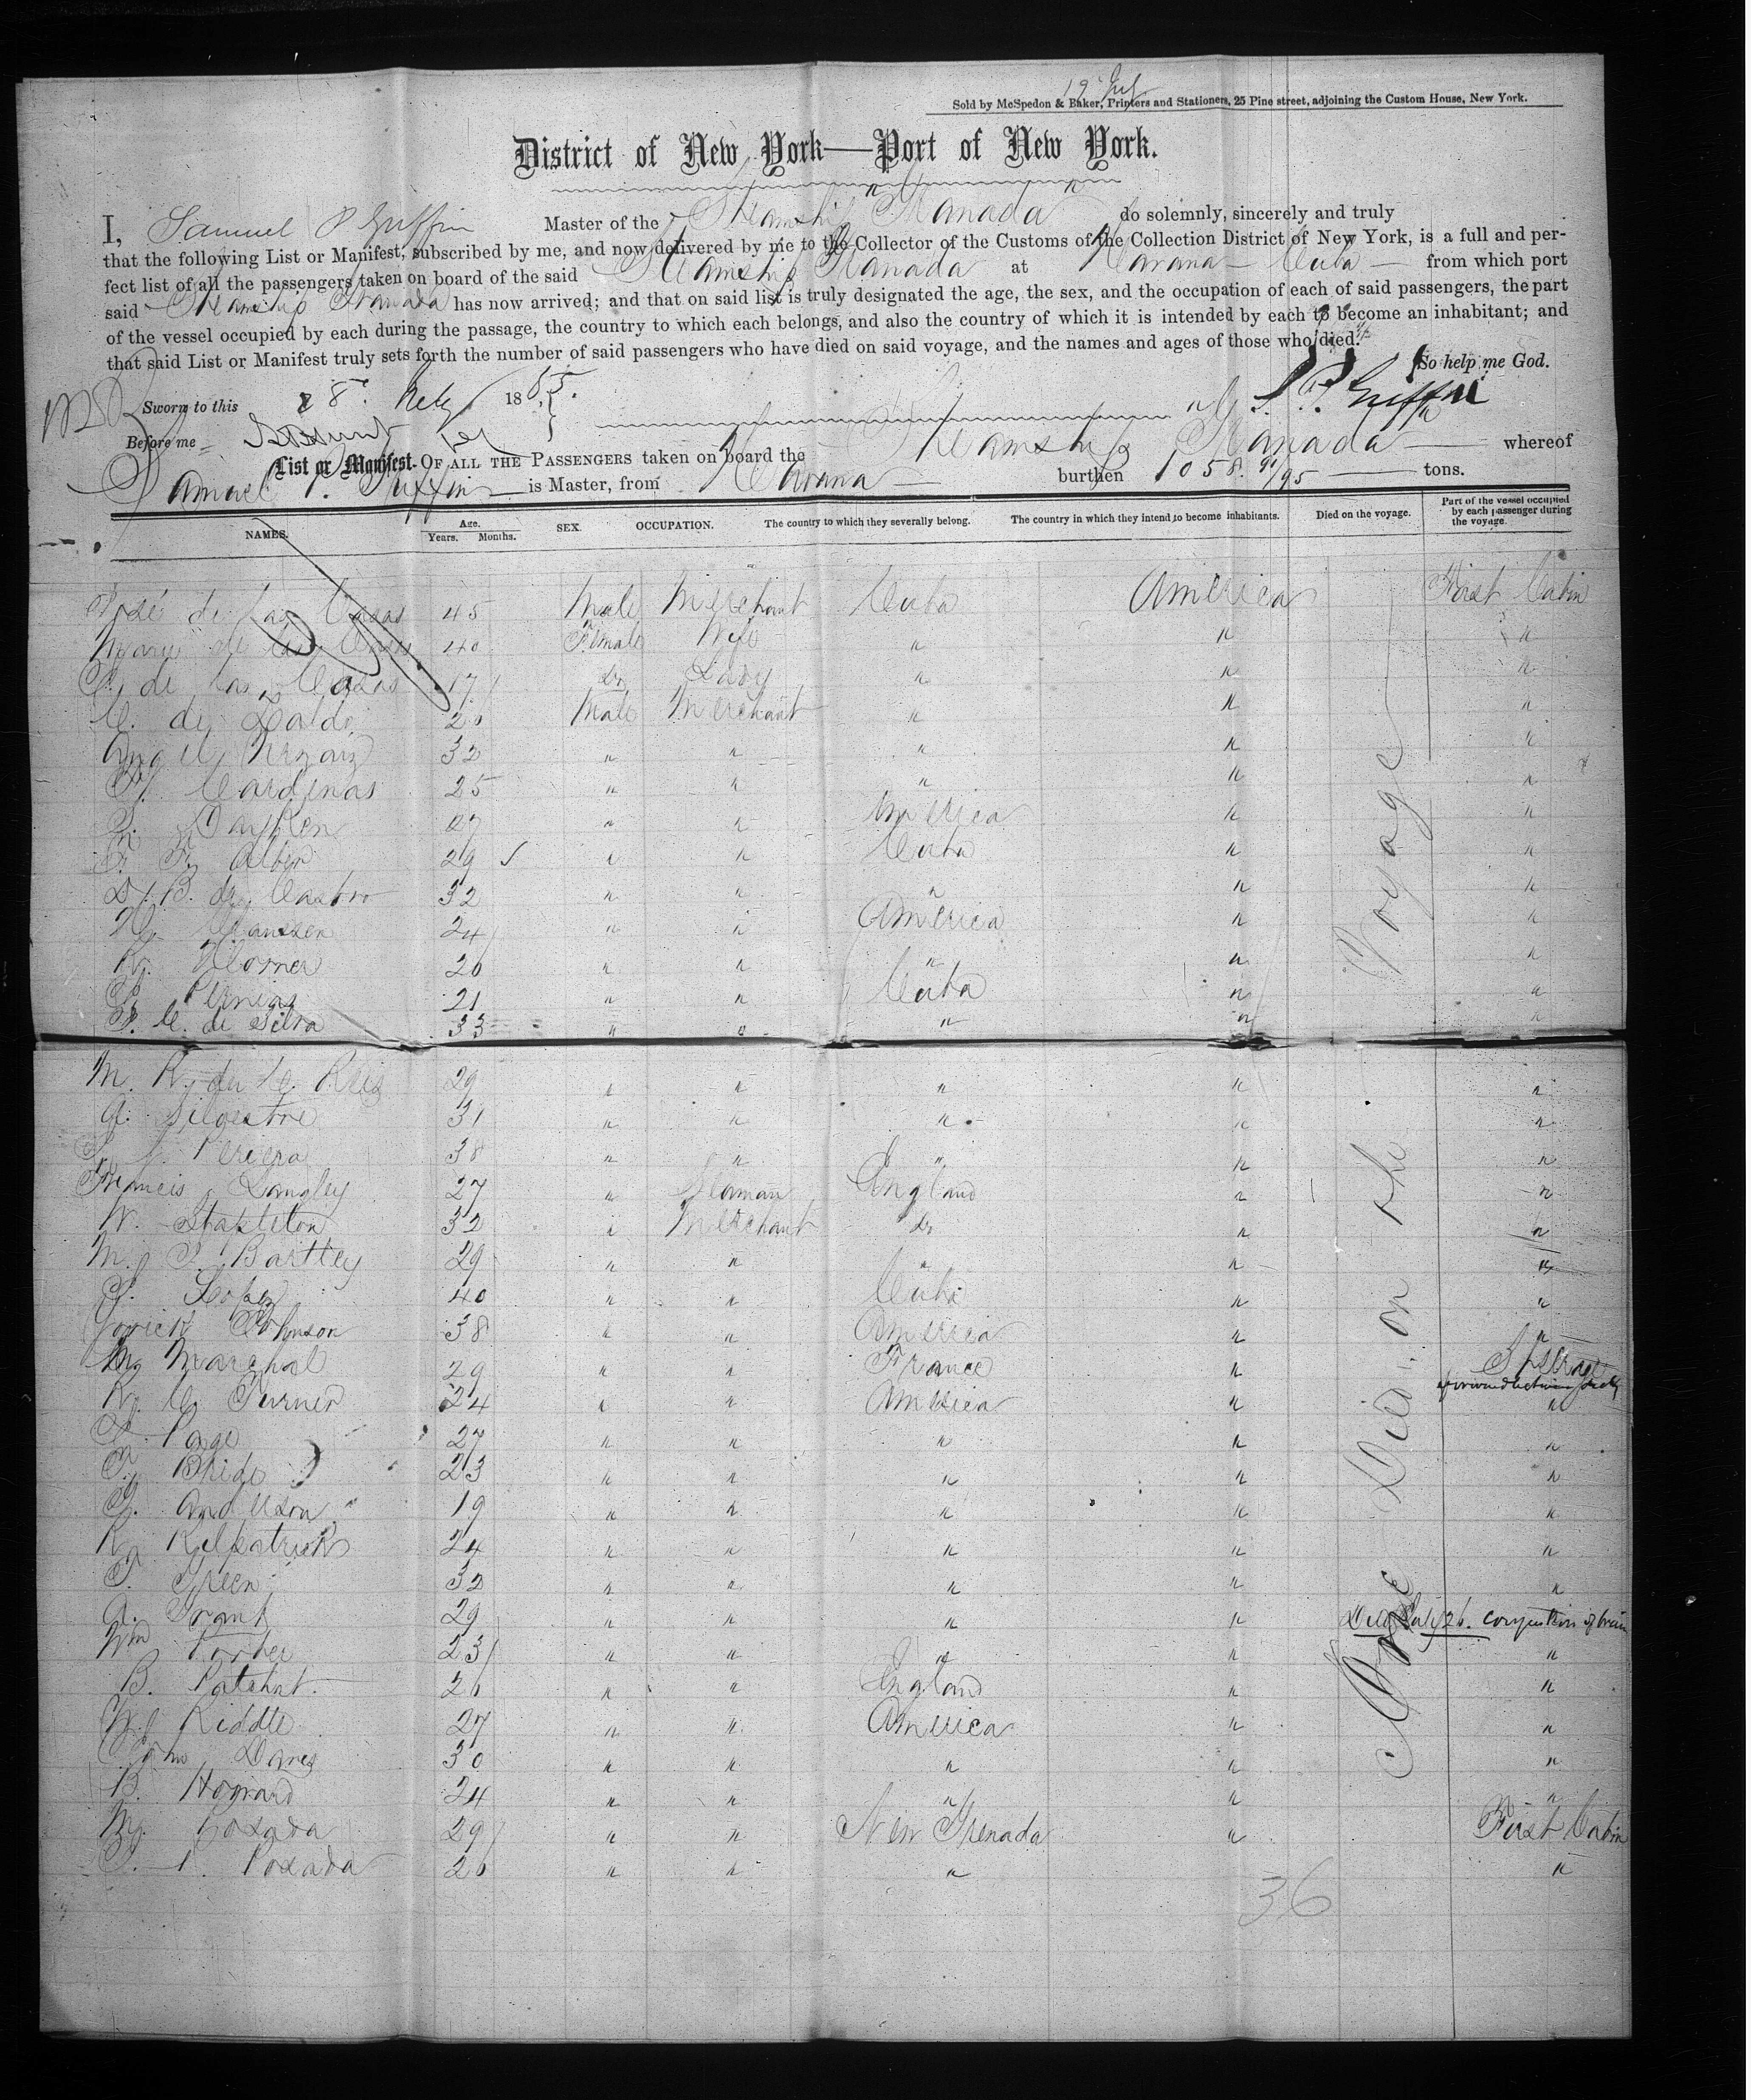 Sold by McSpedon & Baker, Printers and Stationers, 25 Pine street, adjoining the Custom House, New York.
District of New York—Port of New York.
I, Samuel P Griffin Master of the Steamship "Granada" do solemnly, sincerely and truly
that the following List or Manifest, subscribed by me, and now delivered by me to the Collector of the Customs of the Collection District of New York, is a full and per-
fect list of all the passengers taken on board of the said Steamship Granada at Havana - Cuba - from which port
said Steamship Granada has now arrived; and that on said list is truly designated the age, the sex, and the occupation of each of said passengers, the part
of the vessel occupied by each during the passage, the country to which each belongs, and also the country of which it is intended by each to become an inhabitant; and
that said List or Manifest truly sets forth the number of said passengers who have died on said voyage, and the names and ages of those who died.
So help me God.
Sworn to this 28 July 1855. S. P. Griffin
Before me
List or Manifest OF ALL THE PASSENGERS taken on board the Steamship "Granada" whereof
Samuel P. Griffin is Master, from Havana burthen 1058. 91/95 tons.
NAMES. Age. Years. Months. SEX. OCCUPATION. The country to which they severally belong. The country in which they intend to become inhabitants. Died on the voyage. Part of the vessel occupied by each passenger during the voyage.
José de las Casas 45 Male Merchant Cuba America First Cabin
Marie de las Casas 40 Female Wife " " "
de las Casas 17 Do Lady " " "
C. de Zaldo 20 Male Merchant " " "
Angel 32 " " " " "
Cardenas 25 " " " " "
27 " " America " "
29 " " Cuba " "
B. de Castro 32 " " " " "
24 " " America " "
20 " " " " "
21 " " Cuba " "
C. de Silva 33 " " " " "
M. R. 29 " " " " "
A. Silvestre 31 " " " " "
Periera 38 " " " " "
Francis Langley 27 " Seaman England " "
W. Stapleton 32 " Merchant do " "
M. J. Bartley 29 " " " " "
Lopez 40 " " Cuba " "
Johnson 38 " " America " "
Marchal 29 " " France " Steerage
R. C. Turner 24 " " America " "
Page 27 " " " " "
23 " " " " "
Anderson 19 " " " " "
R. Kilpatrick 24 " " " " "
Green 32 " " " " "
A. Grant 29 " " " " Died July 26. congestion of brain
Wm 23 " " " " "
B. 20 " " England " "
W. Riddle 27 " " America " "
30 " " " " "
B. 24 " " " " "
M. Posada 29 " " New Grenada " First Cabin
Posada 20 " " " " "
None Died on the Voyage
36